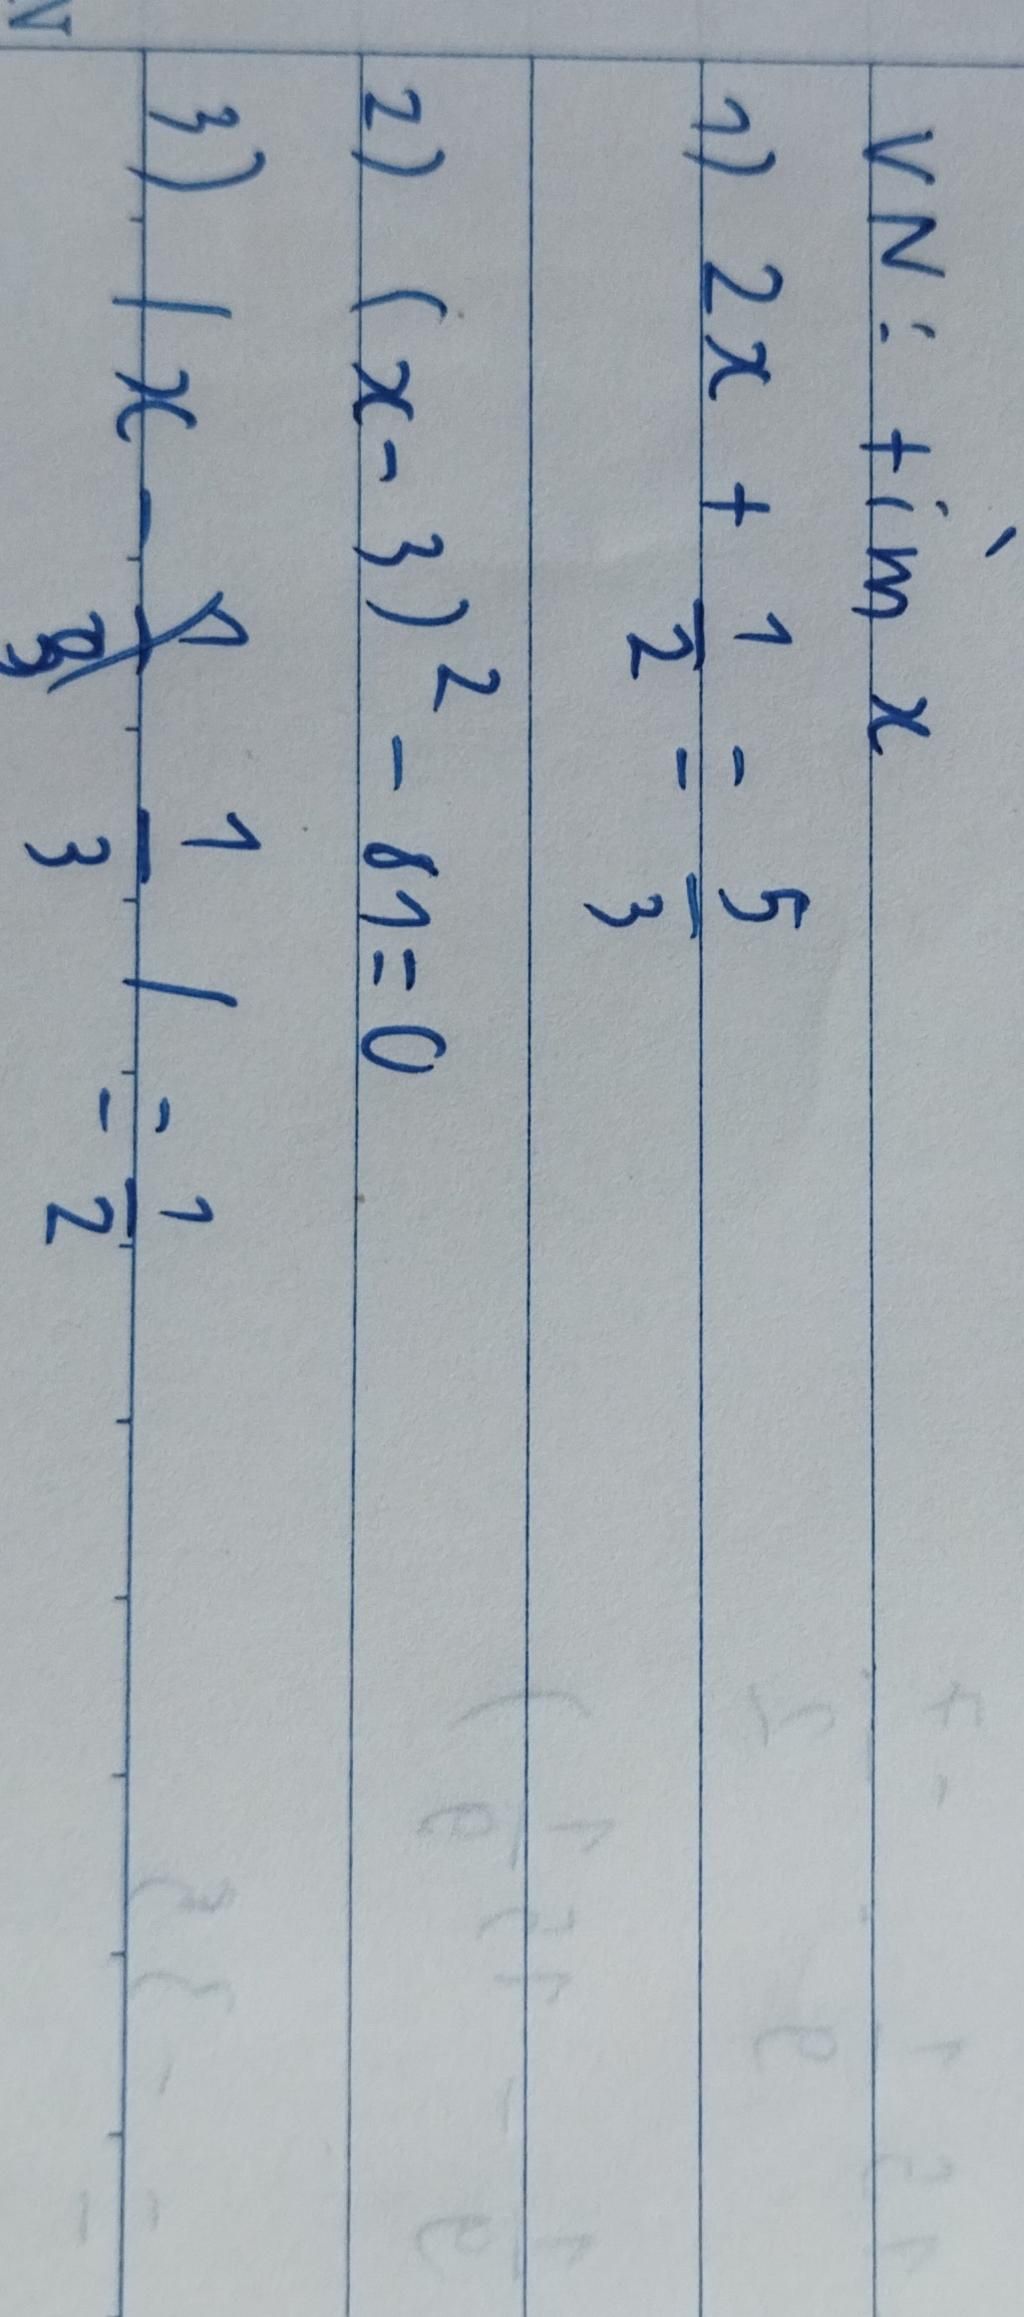 VN: tìm x
1) 2x + 1/2 = 5/3
2) (x-3)² - 81 = 0
3) |x - 1/3| = 1/2
N